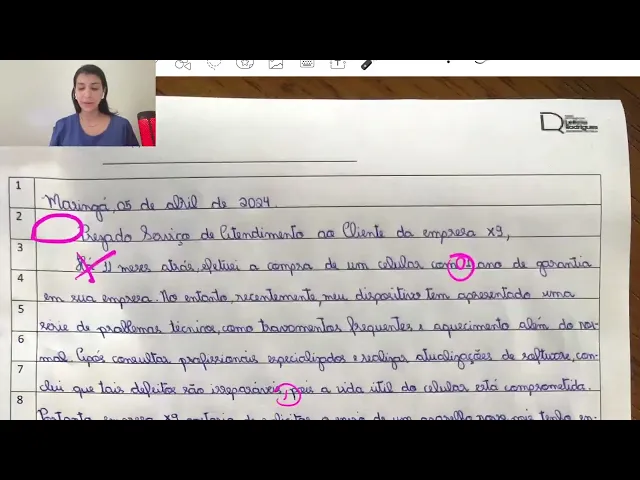 Leticia
Rodrigues
1
Maringá, 05 de abril de 2024.
2
Prezado Serviço de Atendimento ao Cliente da empresa X9,
3
Há 11 meses atrás, efetuei a compra de um celular com 01 ano de garantia
4
em sua empresa. No entanto, recentemente, meu dispositivo tem apresentado uma
5
série de problemas técnicos, como travamentos frequentes e aquecimento além do nor-
6
mal. Após consultar profissionais especializados e realizar atualizações de software, con-
7
clui que tais defeitos são irreparáveis, pois a vida útil do celular está comprometida.
8
Portanto, empresa X9, gostaria de solicitar o envio de um aparelho novo, pois tenho en-